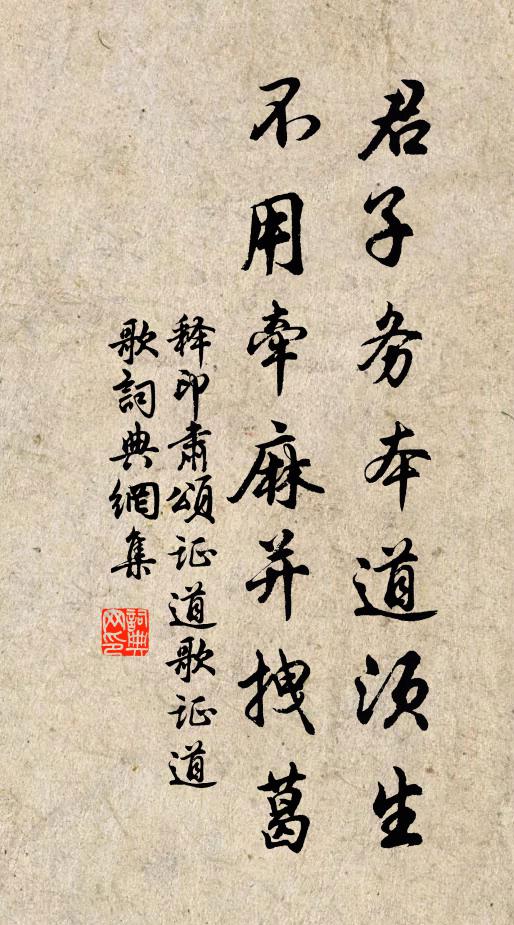 君子务本道须生
不用牵麻并拽葛
释印肃颂证道歌证道
歌詞典網集
詞典網印